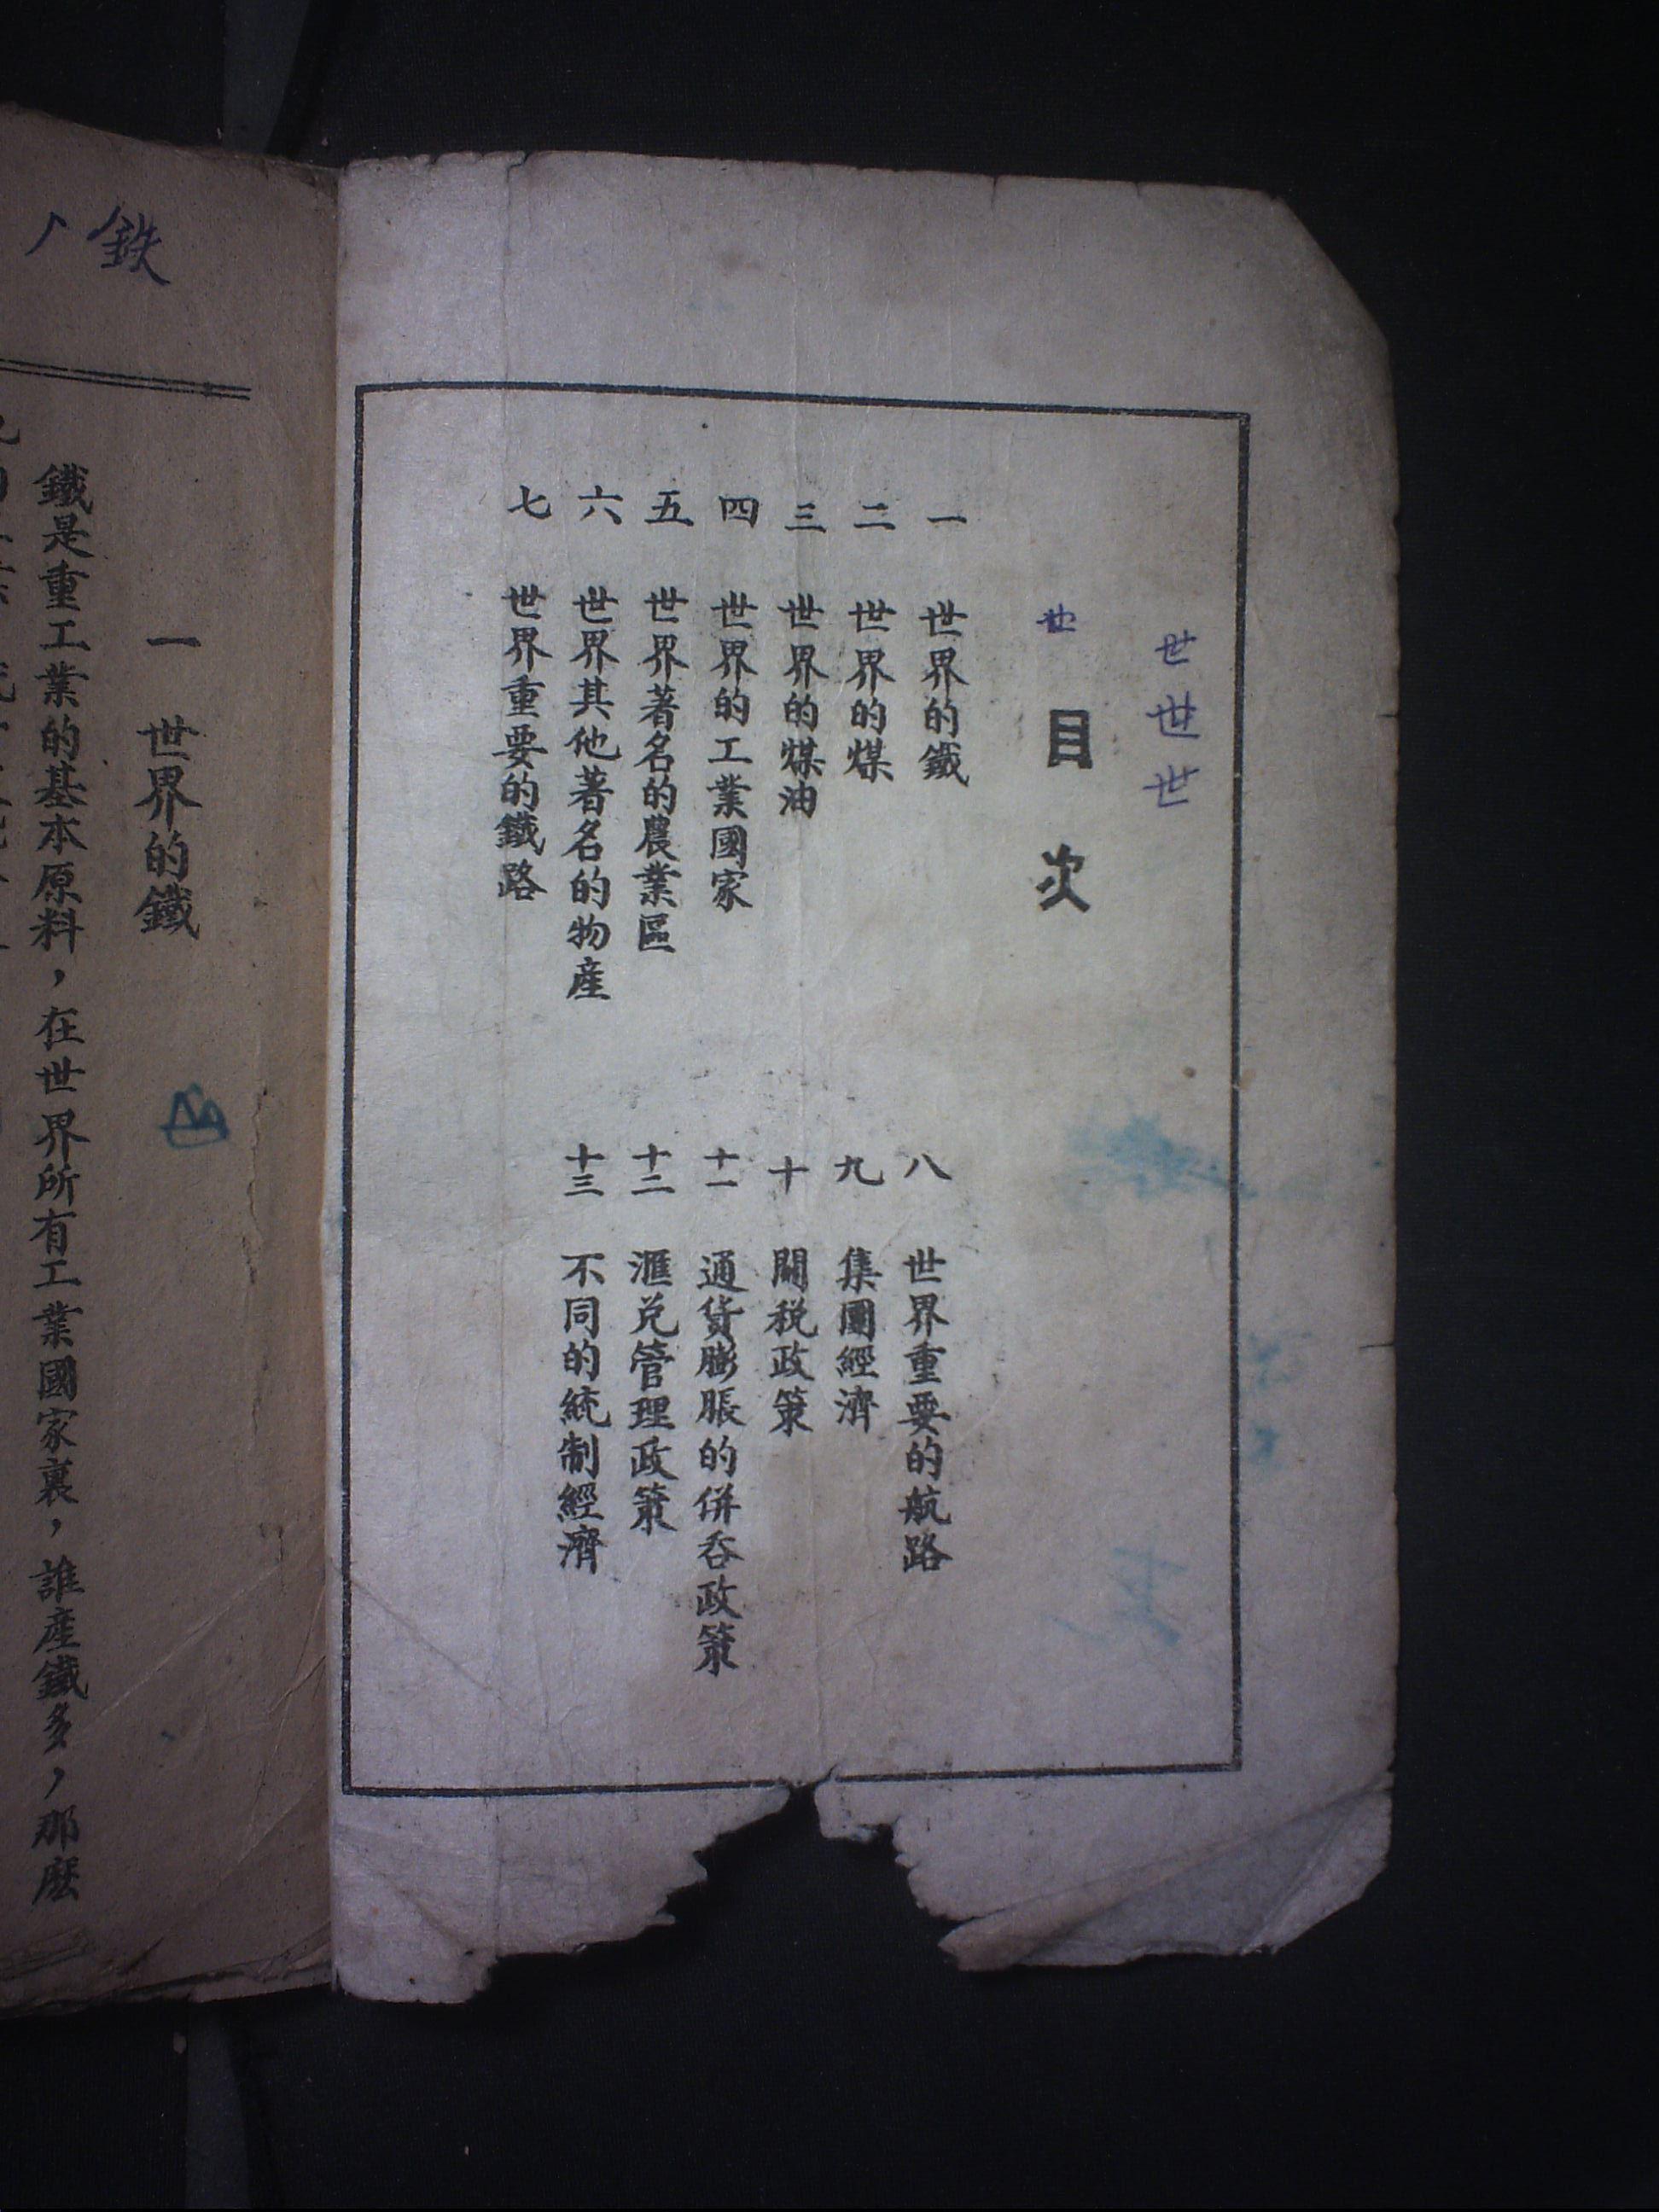 世世世
世
目次
一 世界的鐵
二 世界的煤
三 世界的煤油
四 世界的工業國家
五 世界著名的農業區
六 世界其他著名的物產
七 世界重要的鐵路
八 世界重要的航路
九 集團經濟
十 關税政策
十一 通貨膨脹的併吞政策
十二 滙兌管理政策
十三 不同的統制經濟
鉄
一 世界的鐵
鐵是重工業的基本原料，在世界所有工業國家裏，誰產鐵多，那麼